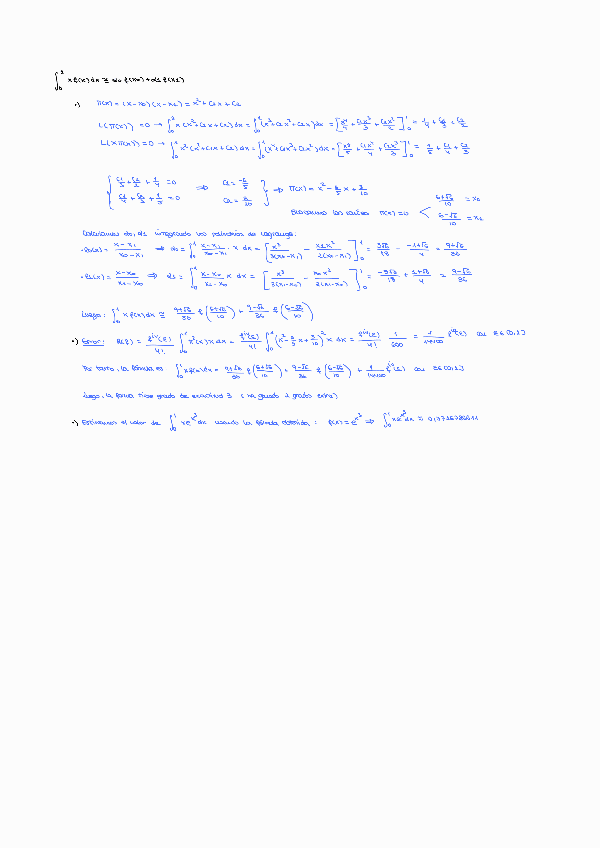 ∫₀¹ x f(x) dx ≅ α₀ f(x₀) + α₁ f(x₁)
•) Π(x) = (x-x₀)(x-x₁) = x² + C₁x + C₂
L(Π(x)) = 0 → ∫₀¹ x(x²+C₁x+C₂) dx = ∫₀¹ (x³+C₁x²+C₂x) dx = [x⁴/4 + C₁x³/3 + C₂x²/2]₀¹ = 1/4 + C₁/3 + C₂/2
L(xΠ(x)) = 0 → ∫₀¹ x²(x²+C₁x+C₂) dx = ∫₀¹ (x⁴+C₁x³+C₂x²) dx = [x⁵/5 + C₁x⁴/4 + C₂x³/3]₀¹ = 1/5 + C₁/4 + C₂/3
{ C₁/3 + C₂/2 + 1/4 = 0
C₁/4 + C₂/3 + 1/5 = 0 ⇒ C₁ = -6/5
C₂ = 3/10 } ⇒ Π(x) = x² - 6/5 x + 3/10
las raíces Π(x) = 0 < 6+√6/10 = x₀
6-√6/10 = x₁
Calculamos α₀, α₁ integrando los polinomios de Lagrange:
· ℓ₀(x) = x-x₁/x₀-x₁ ⇒ α₀ = ∫₀¹ x-x₁/x₀-x₁ · x dx = [x³/3(x₀-x₁) - x₁x²/2(x₀-x₁)]₀¹ = 5√6/18 - -1+√6/4 = 9+√6/36
· ℓ₁(x) = x-x₀/x₁-x₀ ⇒ α₁ = ∫₀¹ x-x₀/x₁-x₀ x dx = [x³/3(x₁-x₀) - x₀x²/2(x₁-x₀)]₀¹ = -5√6/18 + 1+√6/4 = 9-√6/36
Luego: ∫₀¹ x f(x) dx ≅ 9+√6/36 f(6+√6/10) + 9-√6/36 f(6-√6/10)
•) Error: R(f) = fⁱᵛ(ξ)/4! ∫₀¹ Π²(x) x dx = fⁱᵛ(ξ)/4! ∫₀¹ (x²-6/5x+3/10)² x dx = fⁱᵛ(ξ)/4! 1/600 = 1/14400 fⁱᵛ(ξ) con ξ∈[0,1]
Por tanto, la fórmula es ∫₀¹ x f(x) dx = 9+√6/36 f(6+√6/10) + 9-√6/36 f(6-√6/10) + 1/14400 fⁱᵛ(ξ) con ξ∈[0,1]
Luego, la tiene grado de exactitud 3 ( 1 grado extra)
•) el valor de ∫₀¹ x eˣ² dx usando la fórmula obtenida : f(x) = eˣ² ⇒ ∫₀¹ x eˣ² dx ≅